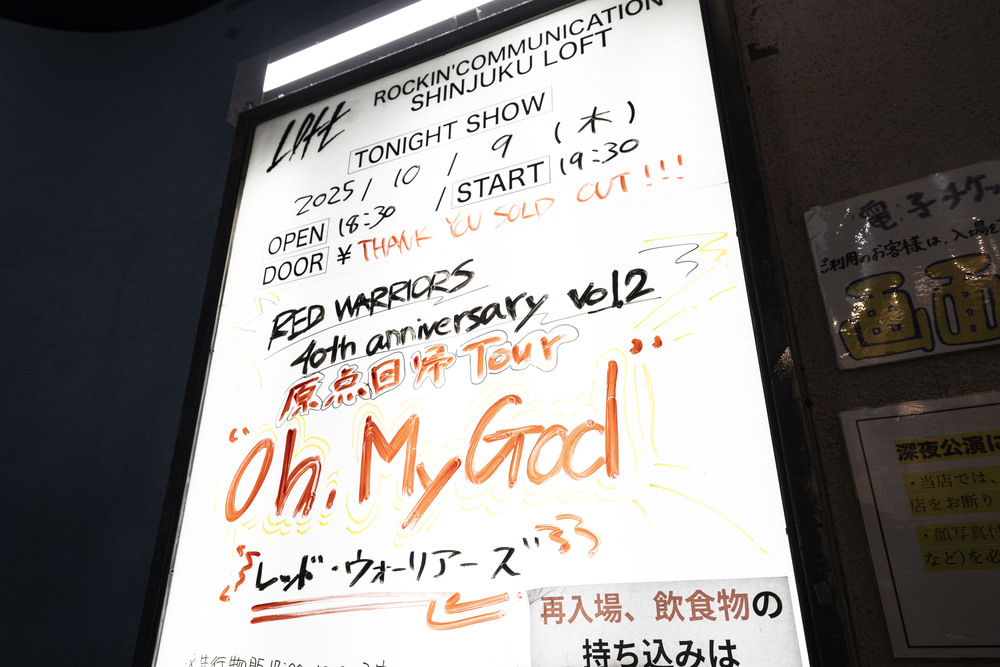 ROCKIN'COMMUNICATION
SHINJUKU LOFT
Loft
TONIGHT SHOW
2025/10/9(木)
OPEN 18:30 / START 19:30
DOOR ¥ THANK YOU SOLD OUT!!!
RED WARRIORS
40th anniversary vol.2
原点回帰 Tour
"Oh, My God"
レッド・ウォーリアーズ
再入場、飲食物の
持ち込みは
電子チケッ
ご利用のお客様は、入場を
画面
深夜公演は
・当店では、
店をお断り
・顔写真付
など)を必